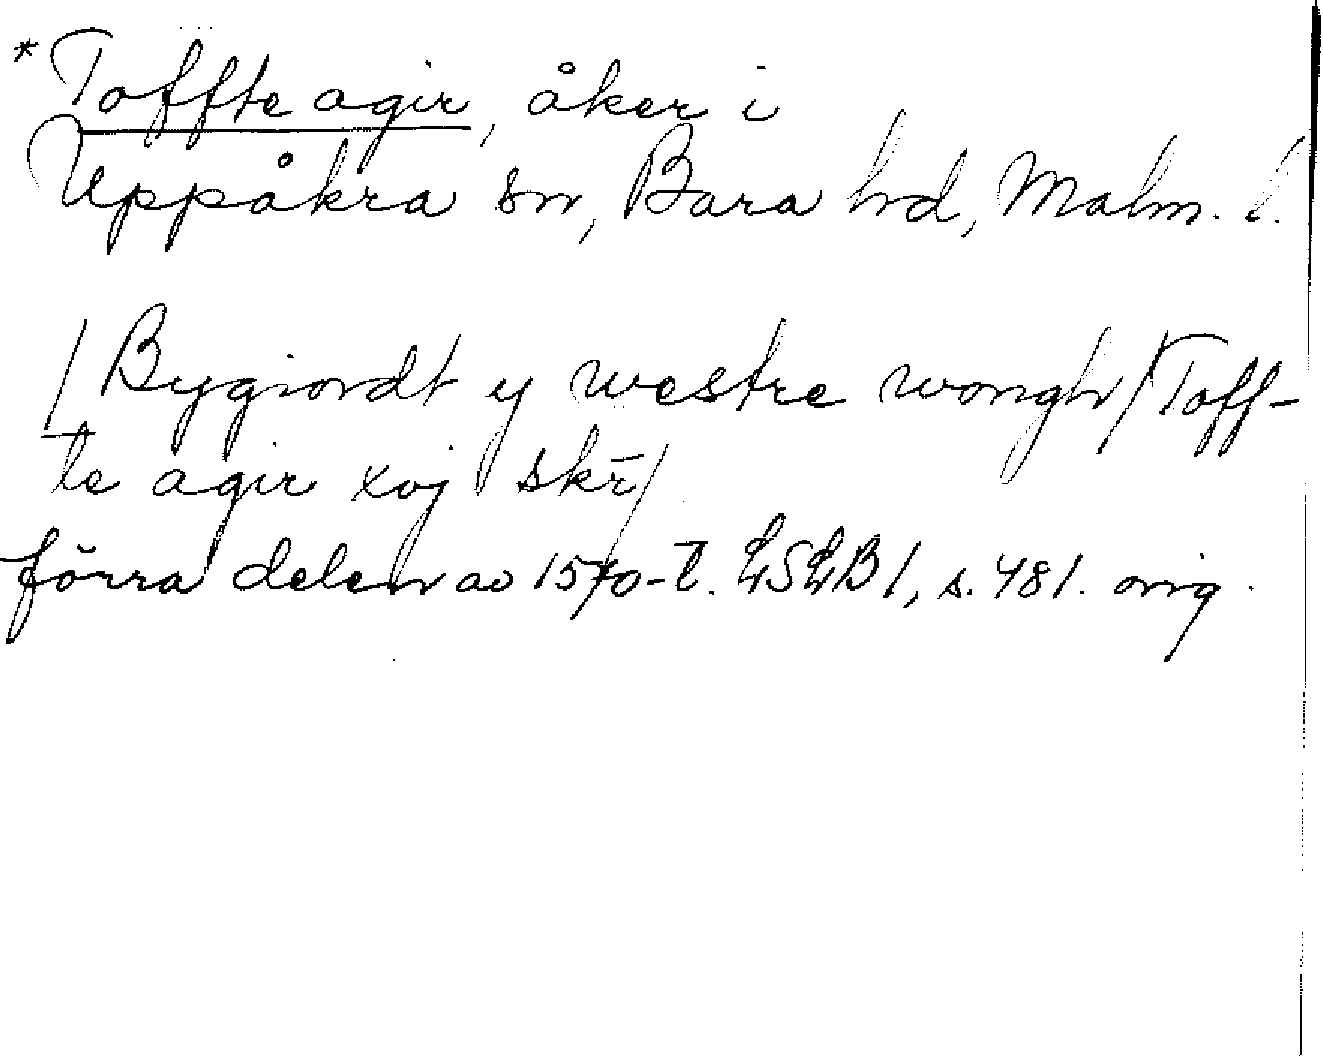 *Toffte agir, åker i
Uppåkra sn, Bara hd, Malm. l.
/Bygiordt y westre wongh/Toff-
te agir xvj skr̄/
förra delen av 1570-t. LSLB 1, s. 481. orig.